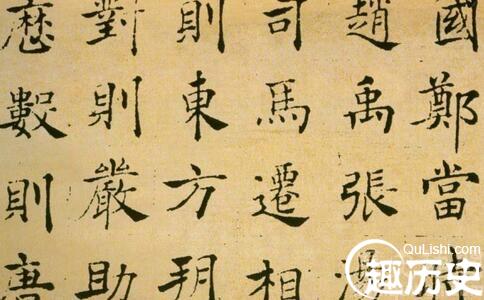 國鄭當
趙禹張湯
司馬遷相
則東方朔
對則嚴助
歷數則唐
QuLishi.com
趣历史